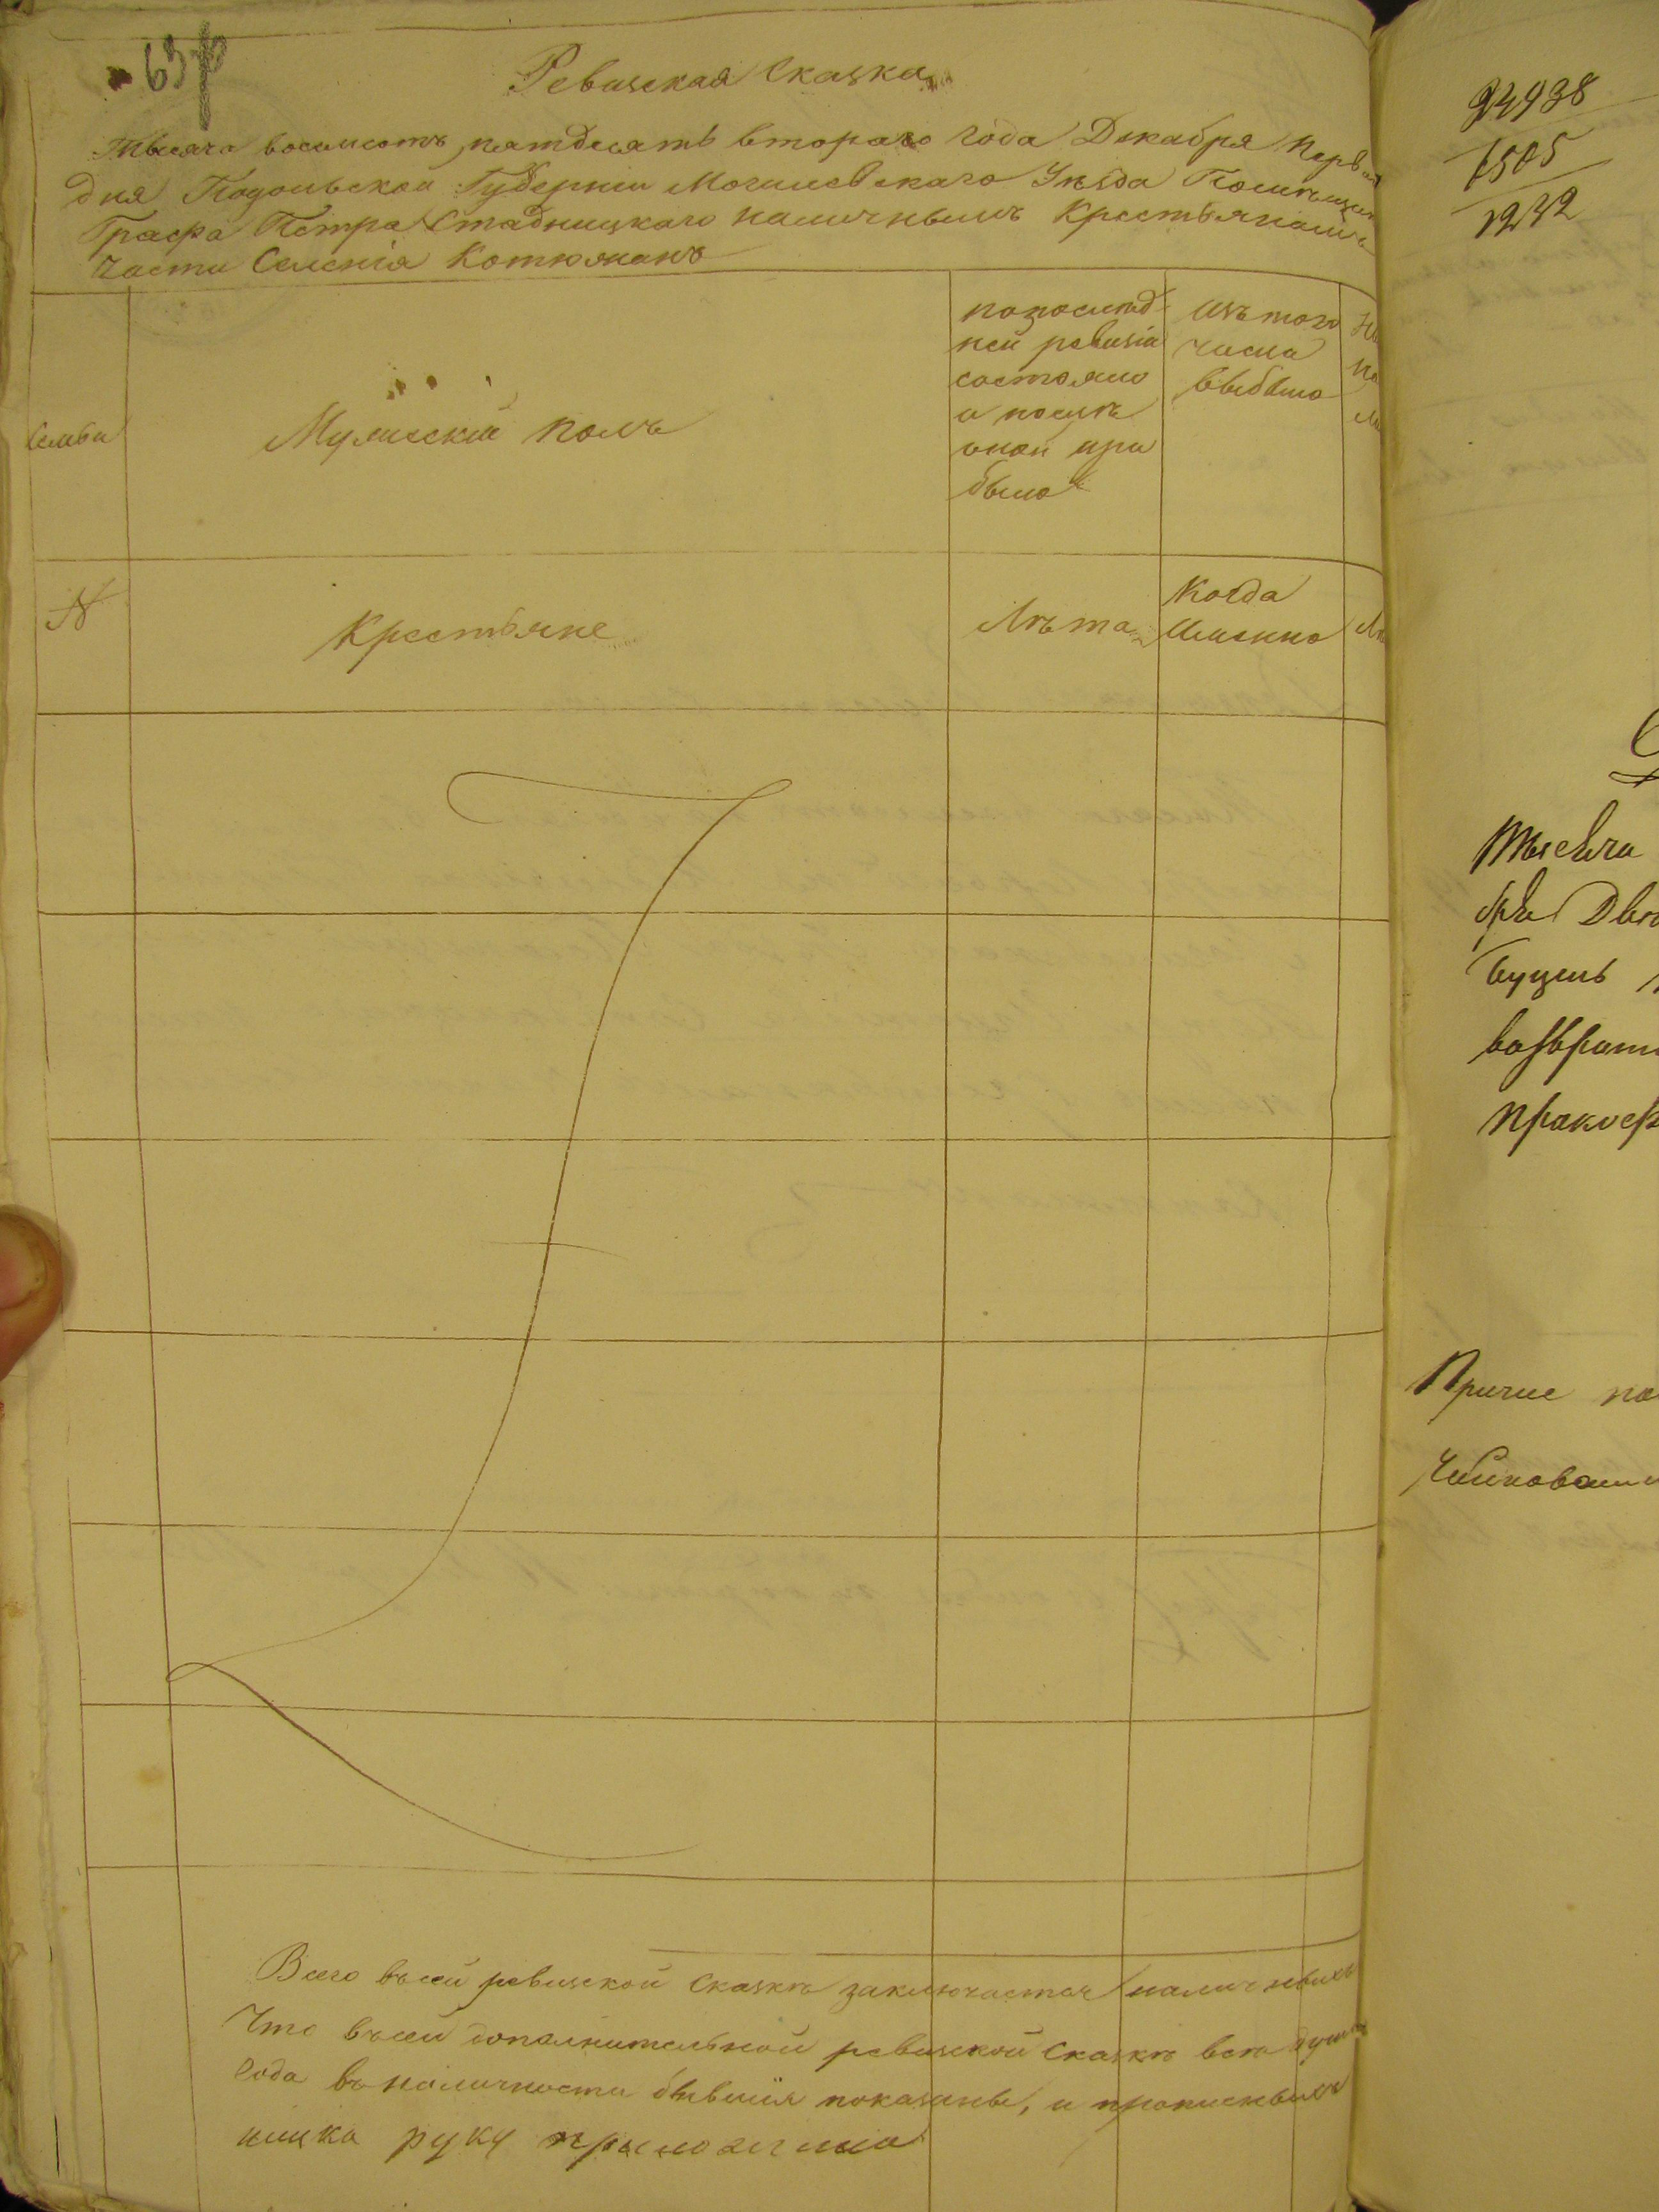 63
Ревизская Сказка
Тысяча восемсотъ пятдесятъ втораго года Декабря перв
дня Подольской Губернии Могилевскаго Уезда Помѣщик
Графа Петра Стадницкаго наличнымъ Крестьянамъ
части Селенія Котюжанъ
Семьи
Мужескій полъ
по последней
ней ревизіи
состояло
и после
оной при
было
Изъ того
числа
выбыло
№
Крестьяне
Лѣта
Когда
Именно
Всего въ сей ревизской Сказкѣ заключается наличныхъ
Что въ сей дополнительной ревизской Сказкѣ всѣ души
года въ наличности бывшія показаны, и прописныхъ
руку приложила
24938
6505
1232
Тысяча
бря Два
возврати
Причие по